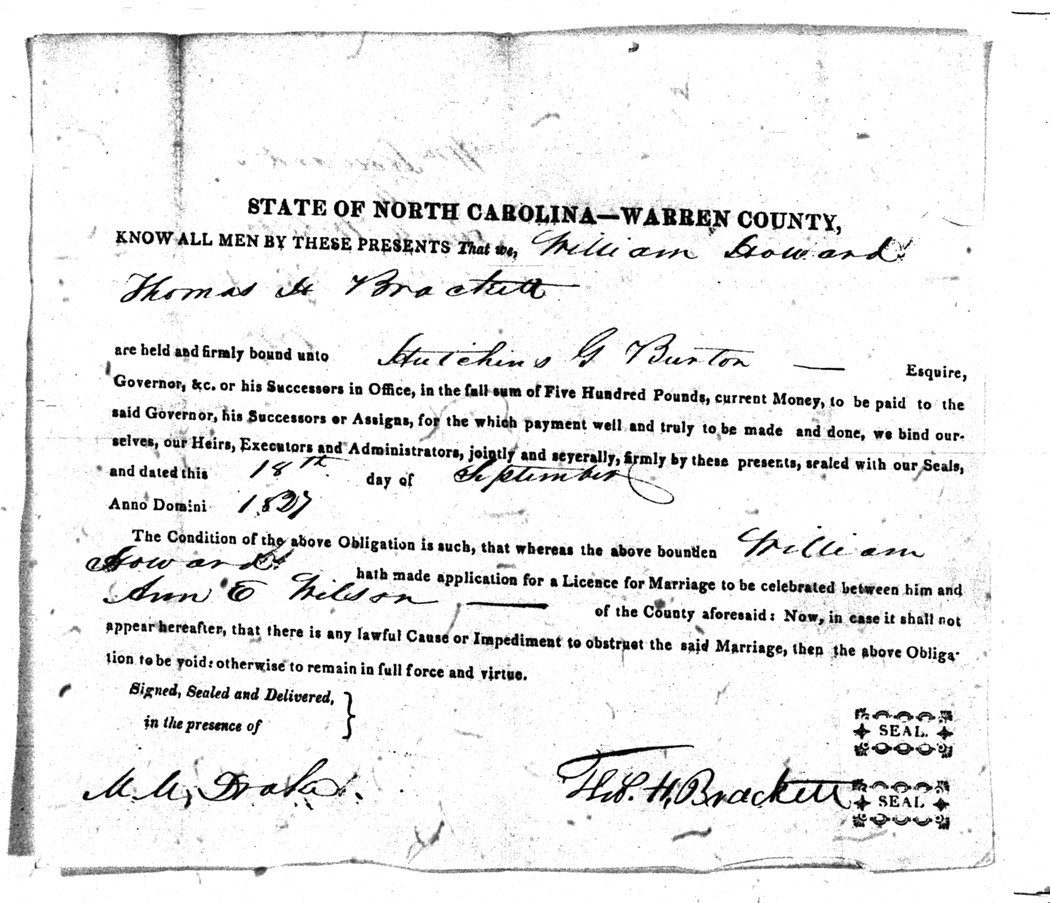 STATE OF NORTH CAROLINA—WARREN COUNTY,
KNOW ALL MEN BY THESE PRESENTS That we, William Howard
Thomas H Brackett
are held and firmly bound unto Hutchins G Burton — Esquire,
Governor, &c. or his Successors in Office, in the full sum of Five Hundred Pounds, current Money, to be paid to the
said Governor, his Successors or Assigns, for the which payment well and truly to be made and done, we bind our-
selves, our Heirs, Executors and Administrators, jointly and severally, firmly by these presents, sealed with our Seals,
and dated this 18th day of September
Anno Domini 1827
The Condition of the above Obligation is such, that whereas the above bounden William
Howard hath made application for a Licence for Marriage to be celebrated between him and
Ann E Wilson — of the County aforesaid: Now, in case it shall not
appear hereafter, that there is any lawful Cause or Impediment to obstruct the said Marriage, then the above Obliga-
tion to be void: otherwise to remain in full force and virtue.
Signed, Sealed and Delivered,
in the presence of
SEAL.
M. M. Drake. Tho. H. Brackett SEAL